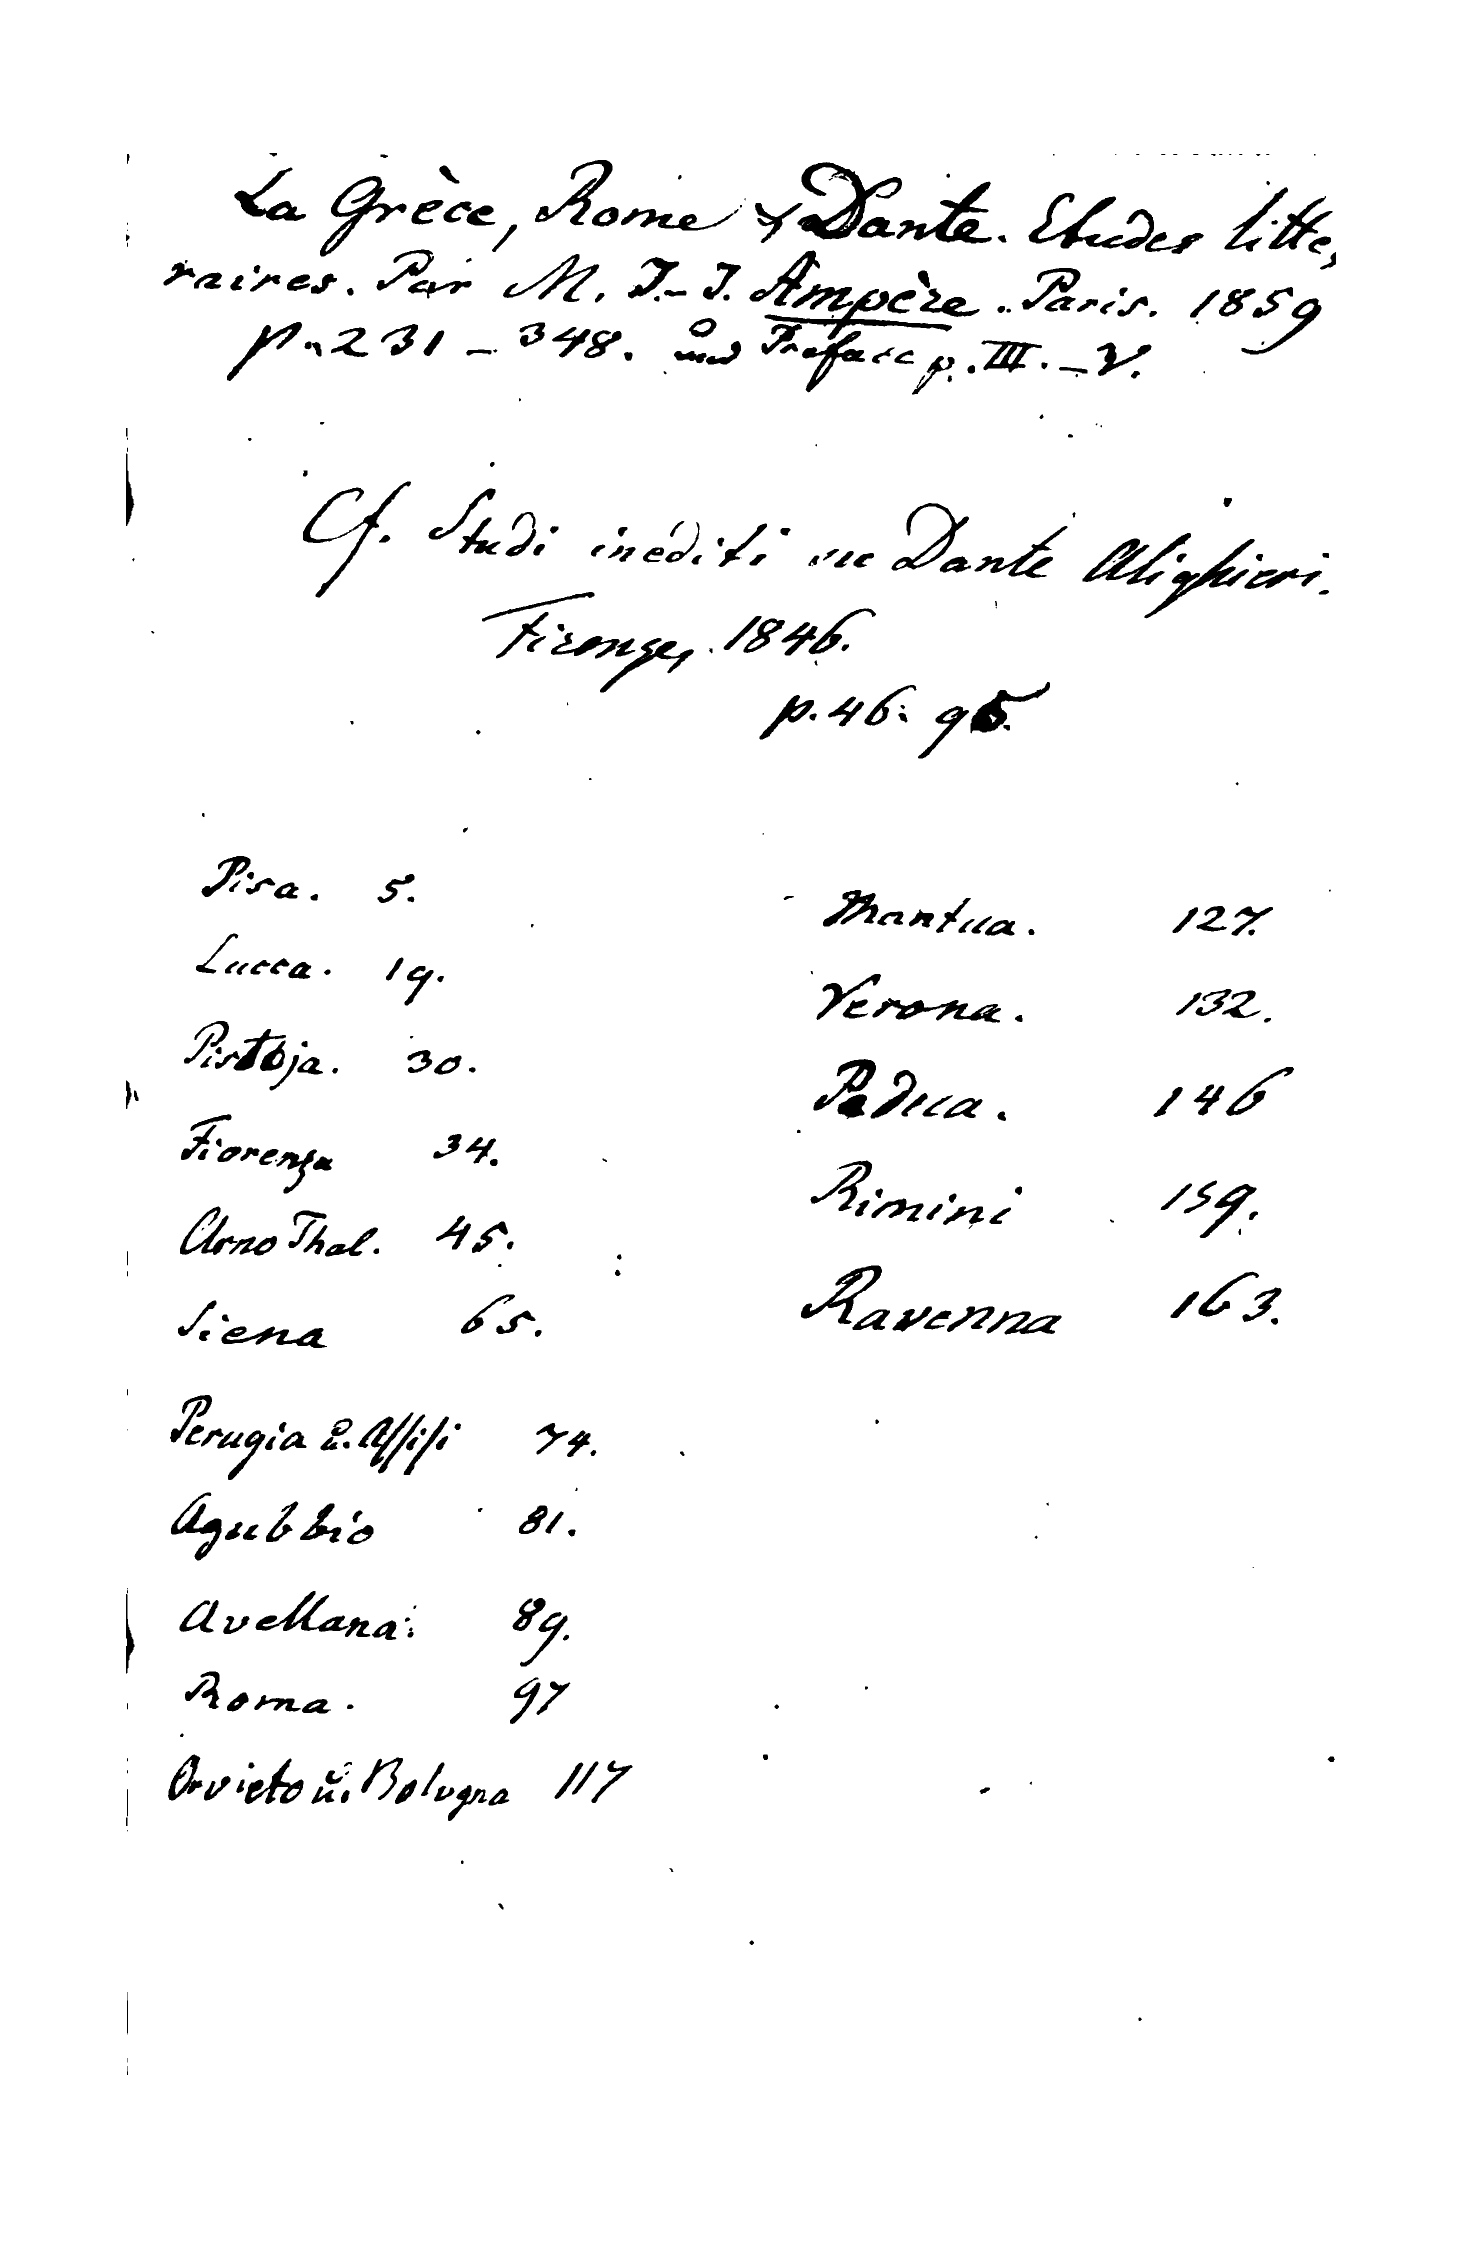 La Grèce, Rome & Dante. Etudes litte,
raires. Par M. J.-J. Ampère. Paris. 1859
p. 231 – 348. und Preface p. III. – V.
Cf. Studi inediti su Dante Alighieri.
Firenze, 1846.
p. 46. 95.
Pisa. 5.
Lucca. 19.
Pistoja. 30.
Fiorenza 34.
Arno Thal. 45.
Siena 65.
Perugia u. Assisi 74.
Agubbio 81.
Avellana. 89.
Roma. 97
Orvieto u. Bologna 117
Mantua. 127.
Verona. 132.
Padua. 146
Rimini 159.
Ravenna 163.